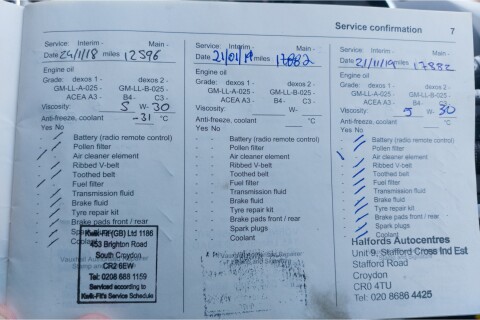 Service confirmation 7
Service: Interim - Main -
Date 24/1/18 miles 12596
Engine oil
Grade: dexos 1 - dexos 2 -
GM-LL-A-025 - GM-LL-B-025 -
ACEA A3 - B4- C3 -
Viscosity: 5 W- 30
Anti-freeze, coolant -31 °C
Yes No
Battery (radio remote control)
Pollen filter
Air cleaner element
Ribbed V-belt
Toothed belt
Fuel filter
Transmission fluid
Brake fluid
Tyre repair kit
Brake pads front / rear
Spark plugs
Coolant
Kwik-Fit (GB) Ltd 1186
453 Brighton Road
South Croydon
CR2 6EW
Tel: 0208 688 1159
Serviced according to
Kwik-Fit's Service Schedule
Service: Interim - Main -
Date 21/01/19 miles 17882
Engine oil
Grade: dexos 1 - dexos 2 -
GM-LL-A-025 - GM-LL-B-025 -
ACEA A3 - B4 - C3 -
Viscosity: W-
Anti-freeze, coolant °C
Yes No
Battery (radio remote control)
Pollen filter
Air cleaner element
Ribbed V-belt
Toothed belt
Fuel filter
Transmission fluid
Brake fluid
Tyre repair kit
Brake pads front / rear
Spark plugs
Coolant
Service: Interim - Main -
Date 21/11/19 miles 17882
Engine oil
Grade: dexos 1 - dexos 2 -
GM-LL-A-025 - GM-LL-B-025 -
ACEA A3 - B4 - C3 -
Viscosity: 5 W- 30
Anti-freeze, coolant °C
Yes No
Battery (radio remote control)
Pollen filter
Air cleaner element
Ribbed V-belt
Toothed belt
Fuel filter
Transmission fluid
Brake fluid
Tyre repair kit
Brake pads front / rear
Spark plugs
Coolant
Halfords Autocentres
Unit 9, Stafford Cross Ind Est
Stafford Road
Croydon
CR0 4TU
Tel: 020 8686 4425